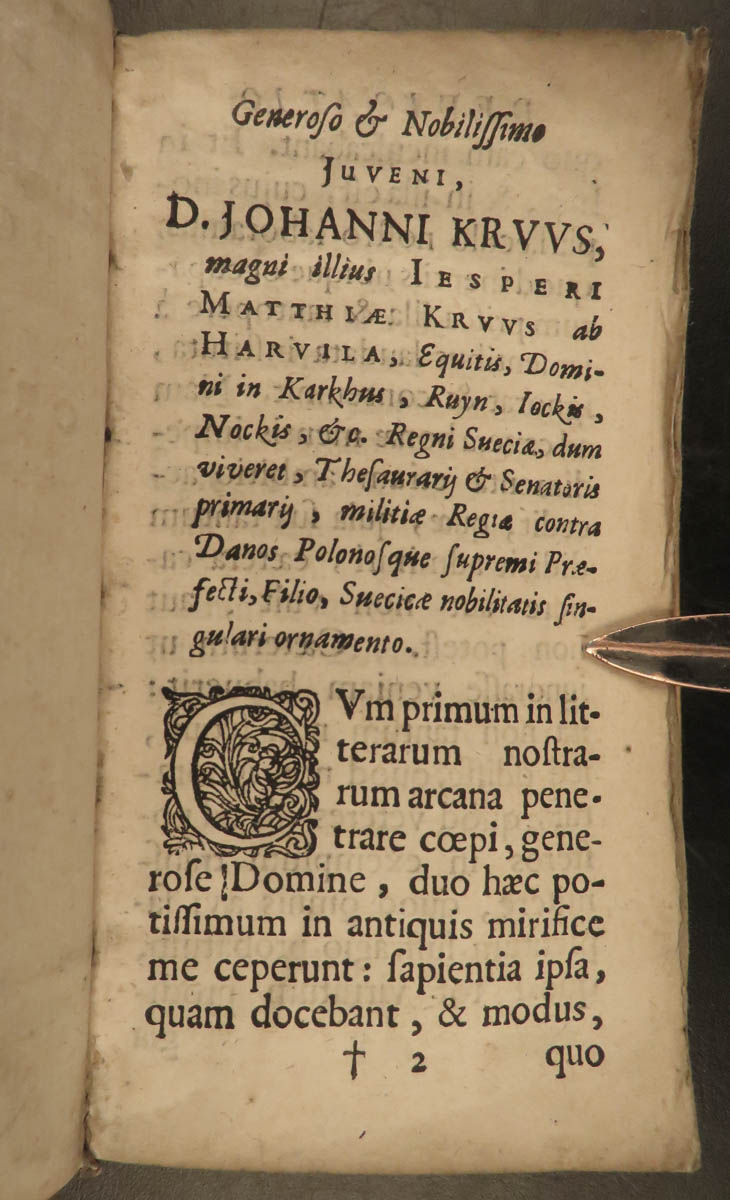 Generoſo & Nobiliſſimo
JUVENI,
D. JOHANNI KRVVS,
magni illius IESPERI
MATTHIÆ KRVVS ab
HARVILA, Equitis, Domi-
ni in Karkhus, Ruyn, Iockis,
Nockis, &c. Regni Sueciæ, dum
viveret, Theſaurarij & Senatoris
primarij, militiæ Regiæ contra
Danos Polonoſque ſupremi Præ-
fecti, Filio, Suecicæ nobilitatis ſin-
gulari ornamento.
CVm primum in lit-
terarum noſtra-
rum arcana pene-
trare cœpi, gene-
roſe Domine, duo hæc po-
tiſſimum in antiquis mirifice
me ceperunt: ſapientia ipſa,
quam docebant, & modus,
† 2 quo